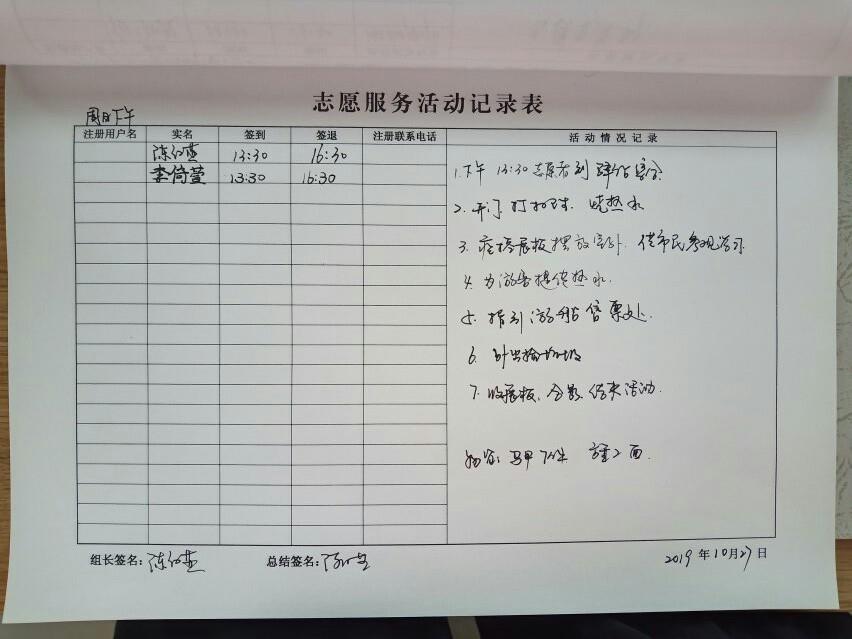 志愿服务活动记录表
周日下午
注册用户名 实名 签到 签退 注册联系电话 活动情况记录
13:30 16:30
李倚萱 13:30 16:30
1.下午 13:30 志愿者到
2.开门 烧热水
3. 展板摆放室外. 供市民参观学习
4.为游客提供热水.
5.指引游船售票处.
6.外出捡垃圾
7.收展板、合影 结束活动.
物资: 马甲 2面.
组长签名: 总结签名:
2019年10月27日